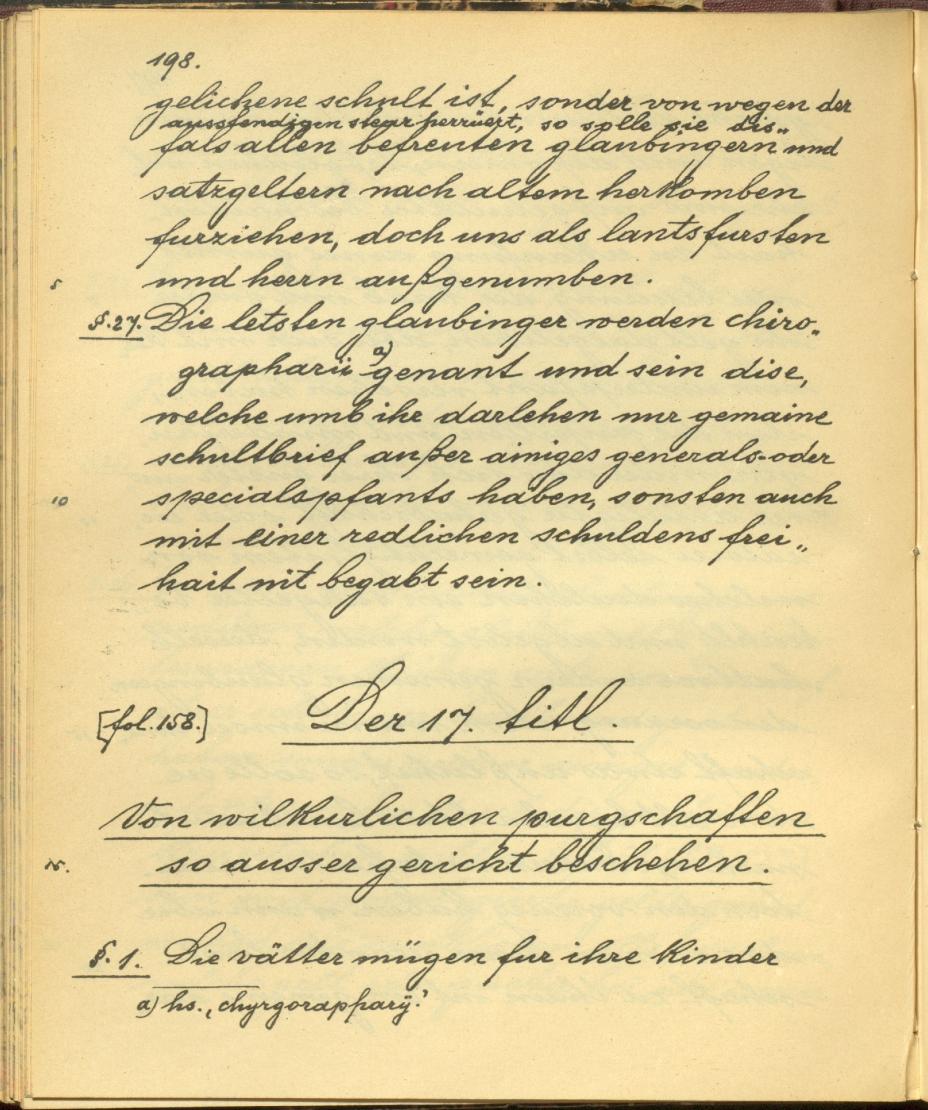 198.
gelichene schult ist, sonder von wegen der
aussstendigen steur herrüert, so solle sie dis„
fals allen befreuten glaubingern und
satzgeltern nach altem herkomben
furziehen, doch uns als lantsfursten
5 und herrn außgenumben.
§.27. Die letsten glaubinger werden chiro„
grapharii a) genant und sein dise,
welche umb ihr darlehen nur gemaine
schultbrief außer ainiges generals-oder
10 specialspfants haben, sonsten auch
mit einer redlichen schuldens frei„
hait nit begabt sein.
[fol. 158.] Der 17. titl
Von wilkurlichen purgschaften
so ausser gericht beschehen.
§. 1. Die vätter mügen fur ihre kinder
a) hs. „chyrgoraphary̏.'